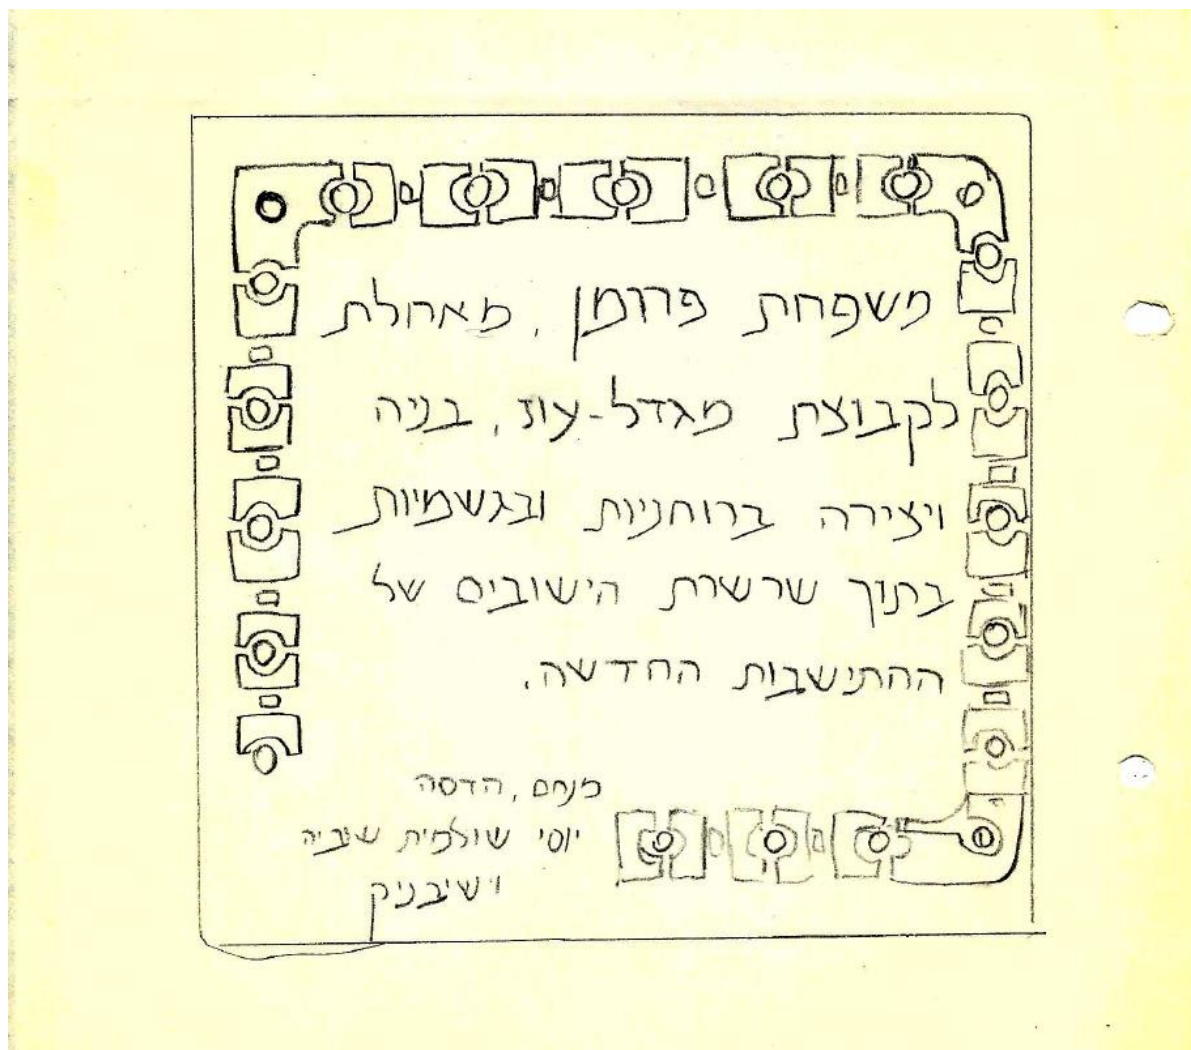 משפחת פרומן, מאחלת
לקבוצת מגדל-עוז, בניה
ויצירה ברוחניות ובגשמיות
בתוך שרשרת הישובים של
ההתישבות החדשה.
מנחם, הדסה
יוסי שולמית שיביה
ושיבניק